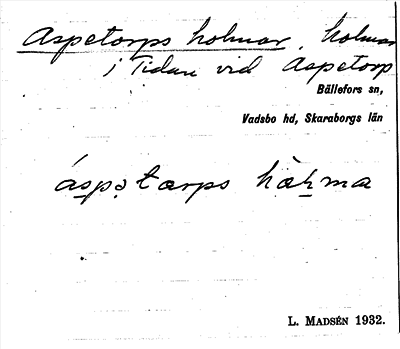 Aspetorps holmar, holmar
i Tidan vid Aspetorp
Bällefors sn,
Vadsbo hd, Skaraborgs län
áspətærps hòḻma
L. MADSÉN 1932.